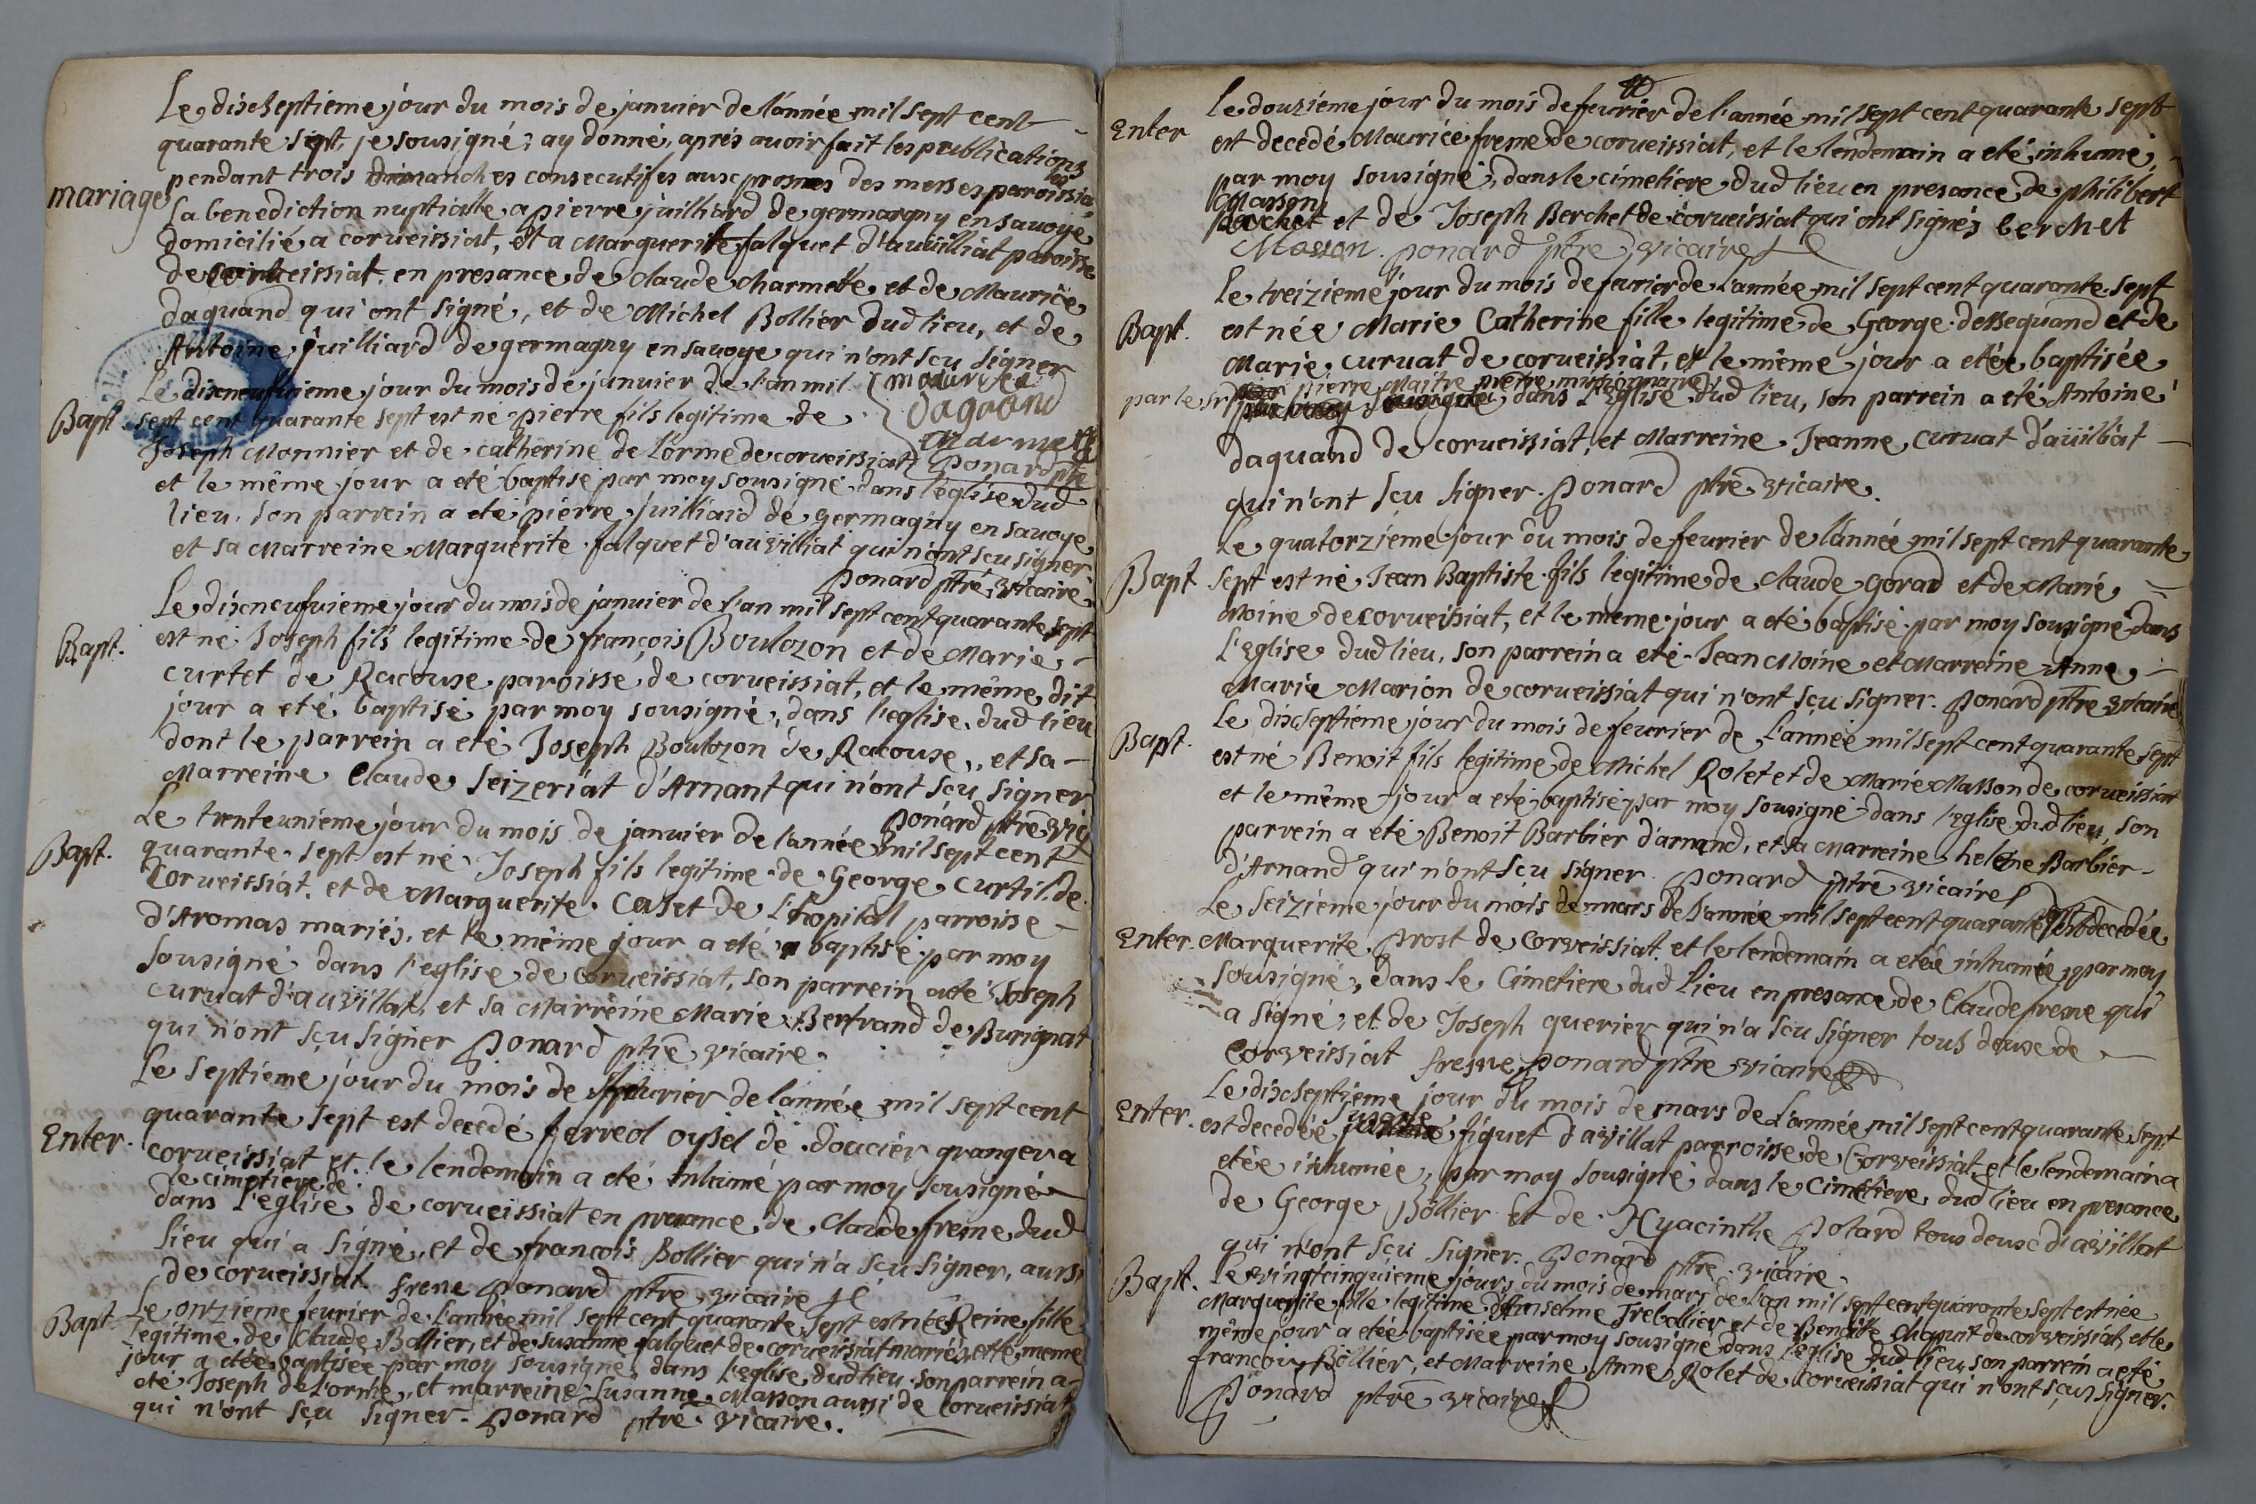 Le dixseptieme jour du mois de janvier de l'année mil sept cent
quarante sept, je sousigné, ay donné, aprés avoir fait les publications
pendant trois dimanches consecutifes aux prosnes des messes paroissia
les
mariage
la benediction nuptialle a pierre juilliard de germagny en savoye
domicilié a corveissiat, et a Marguerite falquet d'auvilliat paroisse
de corveissiat. en presance de Claude Charmette et de Maurice
daquand qui ont signé, et de Michel Bollier dud lieu, et de
Antoine juilliard de germagny en savoye qui n'ont sçu signer
maurise
dagaand
charmette
ponard ptre
Bapt.
Le dixneufvieme jour du mois de janvier de l'an mil
sept cent quarante sept est né pierre fils legitime de
Joseph Monnier et de catherine de Lorme de corveissiat
et le même jour a eté baptisé par moy sousigné dans l'eglise dud
lieu. son parrein a eté pierre juilliard de germagny en savoye
et sa Marreine Marguerite falquet d'auvilliat qui n'ont sçu signer
ponard ptre vicaire
Bapt.
Le dixneufvieme jour du mois de janvier de l'an mil sept cent quarante sept
est né Joseph fils legitime de françois Boulozon et de Marie
curtet de Racouse paroisse de corveissiat, et le même dit
jour a eté baptisé par moy sousigné, dans l'eglise dud lieu
dont le parrein a eté Joseph Boulozon de Racouse, et sa
Marreine Claude Seizeriat d'Arnant qui n'ont sçu signer
ponard ptre vic
Bapt.
Le trenteunieme jour du mois de janvier de l'année mil sept cent
quarante sept est né Joseph fils legitime de George Curtil de
Corveissiat. et de Marguerite Caset de L'hopital parroisse
d'Aromas mariés, et le même jour a eté baptisé par moy
sousigné dans l'eglise de corveissiat, son parrein a eté Joseph
curvat d'auvillat, et sa Marreine Marie Bertrand de Burignat
qui n'ont sçu signer ponard ptre vicaire.
Enter.
Le septieme jour du mois de fevrier de l'année mil sept cent
quarante sept est decedé ferreol oysel de doucier granger a
corveissiat et le lendemain a eté inhumé par moy sousigné
le cimetiere de
dans l'eglise de corveissiat en presance de Claude frême dud
lieu qui a signé, et de françois Bollier qui n'a sçu signer, aussi
de corveissiat. freme ponard ptre vicaire
Bapt.
Le onzieme fevrier de l'année mil sept cent quarante sept est née Reine fille
legitime de Claude Bollier, et de susanne falquet de corveissiat mariés, et le meme
jour a etée baptisée par moy sousigné dans l'eglise dud lieu. son parrein a
eté Joseph de Lorme, et marreine Susanne Masson aussi de Corveissiat
qui n'ont sçu signer. ponard ptre vicaire.
Enter
Le douzieme jour du mois de fevrier de l'année mil sept cent quarante sept
est decedé Maurice freme de corveissiat, et le lendemain a eté inhumé,
par moy sousigné, dans le cimetiere dud lieu en presance de philibert
Masson
perchet et de Joseph Berchet de corveissiat qui ont signés berchet
Masson. ponard ptre vicaire
Bapt.
Le treizieme jour du mois de fevrier de l'année mil sept cent quarante sept
est née Marie Catherine fille legitime de George dessequand et de
Marie curvat de corveissiat, et le même jour a etée baptisée
par le sr pierre Maitre prêtre missionnaire
par moy sousigné dans l'Eglise dud lieu, son parrein a eté Antoine
daquand de corveissiat, et Marreine Jeanne curvat d'auilliat
qui n'ont sçu signer. ponard ptre vicaire.
Bapt
Le quatorzieme jour du mois de fevrier de l'année mil sept cent quarante
sept est né Jean Baptiste fils legitime de Claude gorad et de Marie
Moine de corveissiat, et le meme jour a eté baptisé par moy sousigné dans
l'Eglise dud lieu, son parrein a eté Jean Moine et Marreine Anne
Marie Marion de corveissiat qui n'ont sçu signer. ponard ptre vicaire
Bapt.
Le dixseptieme jour du mois de fevrier de l'année mil sept cent quarante sept
est né Benoit fils legitime de Michel Rolet et de Marie Masson de corveissiat
et le même jour a eté baptisé par moy sousigné dans l'eglise dud lieu, son
parrein a eté Benoit Barbier d'arnand, et sa Marreine helene Barbier
d'Arnand qui n'ont sçu signer. ponard ptre vicaire
Enter.
Le seizieme jour du mois de mars de l'année mil sept cent quarante sept est decedée
Marguerite prost de Corveissiat. et le lendemain a etée inhumée par moy
sousigné, dans le Cimetiere dud Lieu en presance de Claude freme qui
a signé, et de Joseph querier qui n'a sçu signer tous deux de
Corveissiat freme ponard ptre vicaire
Enter.
Le dixseptieme jour du mois de mars de l'année mil sept cent quarante sept
Susanne
est decedée figuet d'avillat parroisse de Corveissiat et le lendemain a
etée inhumée, par moy sousigné, dans le cimetiere dud lieu en presance
de George Bollier et de Hyacinthe potard tous deux d'avillat
qui n'ont sçu signer. ponard ptre vicaire.
Bapt.
Le vingtcinquieme jours du mois de mars de l'an mil sept cent quarante sept est née
Marguerite fille legitime d'Anselme Treballier et de Benoitte Chapuit de corveissiat, et le
même jour a etée baptisée par moy sousigné dans l'eglise dud lieu, son parrein a eté
francois Bollier, et Marreine Anne Rolet de Corveissiat qui n'ont sçus signer.
ponard ptre vicaire